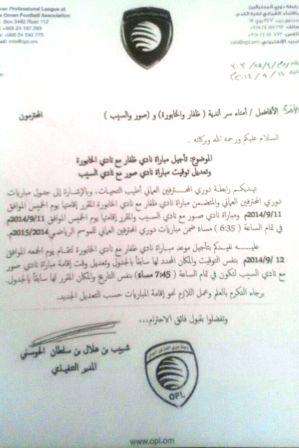 Professional League at
Oman Football Association
www.opl.om
الأفاضل / أمناء سر أندية ( ظفار والخابورة ) و ( صور والسيب )
المحترمون
السلام عليكم ورحمة الله وبركاته .
الموضوع: تأجيل مباراة نادي ظفار مع نادي الخابورة
وتعديل توقيت مباراة نادي صور مع نادي السيب
تهديكم رابطة دوري المحترفين العماني أطيب التحيات، وبالإشارة إلى جدول مباريات
دوري المحترفين العماني والمتضمن مباراة نادي ظفار مع نادي الخابورة المقرر إقامتها يوم الخميس الموافق
2014/9/11م ومباراة نادي صور مع نادي السيب والمقرر إقامتها يوم الخميس الموافق 2014/9/11م
في تمام الساعة ( 6:35 ) مساءً ضمن مباريات دوري المحترفين العماني للموسم الرياضي 2015/2014م
عليه نفيدكم بتأجيل موعد مباراة نادي ظفار مع نادي الخابورة لتقام يوم الجمعة الموافق
2014/9/12م بنفس التوقيت والمكان المحدد لها سابقاً بالجدول، وتعديل وقت إقامة مباراة نادي صور
مع نادي السيب لتكون في تمام الساعة ( 7:45 مساءً ) بنفس التاريخ والمكان المقرر لها سابقاً بالجدول.
برجاء التكرم بالعلم وعمل اللازم نحو إقامة المباريات حسب التعديل الجديد.
وتفضلوا بقبول فائق الاحترام،،،
شبيب بن هلال بن سلطان الحوسني
المدير التنفيذي
OPL
www.opl.om